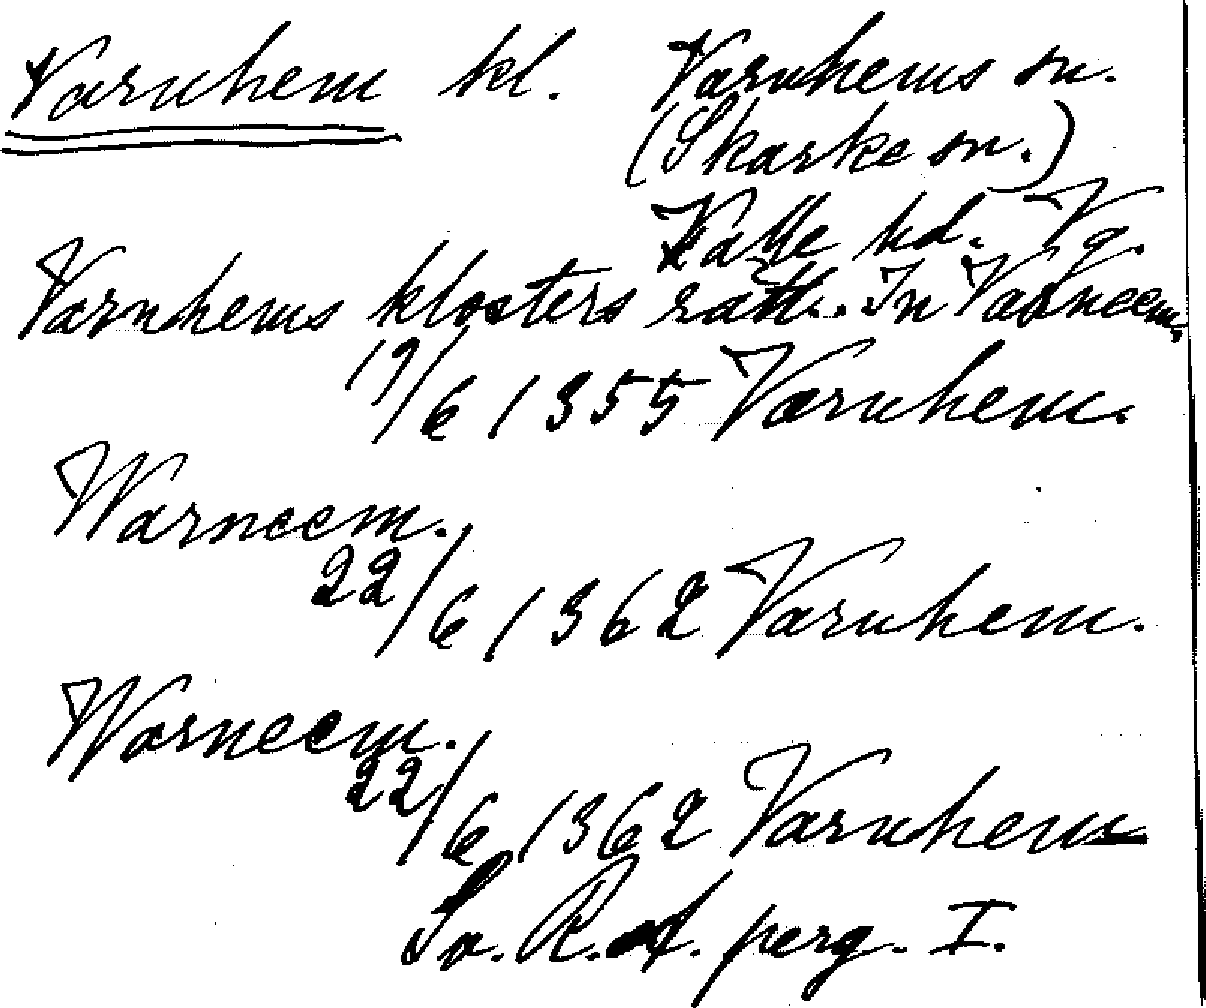 Varnhem kl. Varnhems sn.
(Skarke sn.)
Valle hd. Vg.
Varnhems klosters rätt.. In Varneem,
19/6 1355 Varnhem.
Warneem.,
22/6 1362 Varnhem.
Warneem.,
22/6 1362 Varnhem
Sv. R. A. perg. I.